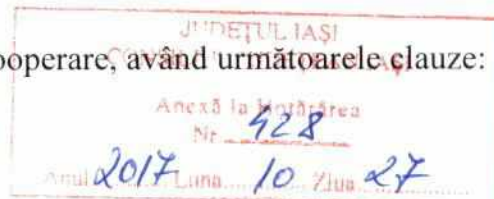 JUDEŢUL IAŞI
ooperare, având următoarele clauze:
Anexă la Hotărârea
Nr. 428
Anul 2017 Luna 10 Ziua 27